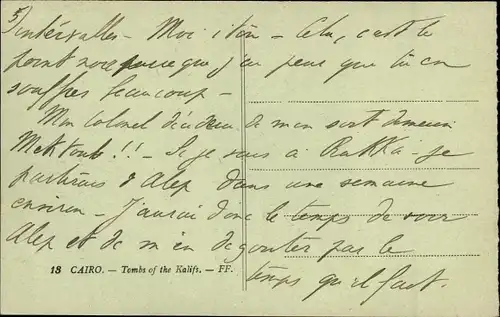 5)
intervalles - Moi ! Cela, c'est le
point noir parce que j'ai peur que tu en
souffres beaucoup -
Mon Colonel décidera de mon sort demain
Mektoub!! - Si je vais à Rakka - je
partirais d'Alep dans une semaine
environ - J'aurai donc le temps de voir
Alep et de m'en dégouter par le
temps qu'il fait.
18 CAIRO. — Tombs of the Kalifs. — FF.